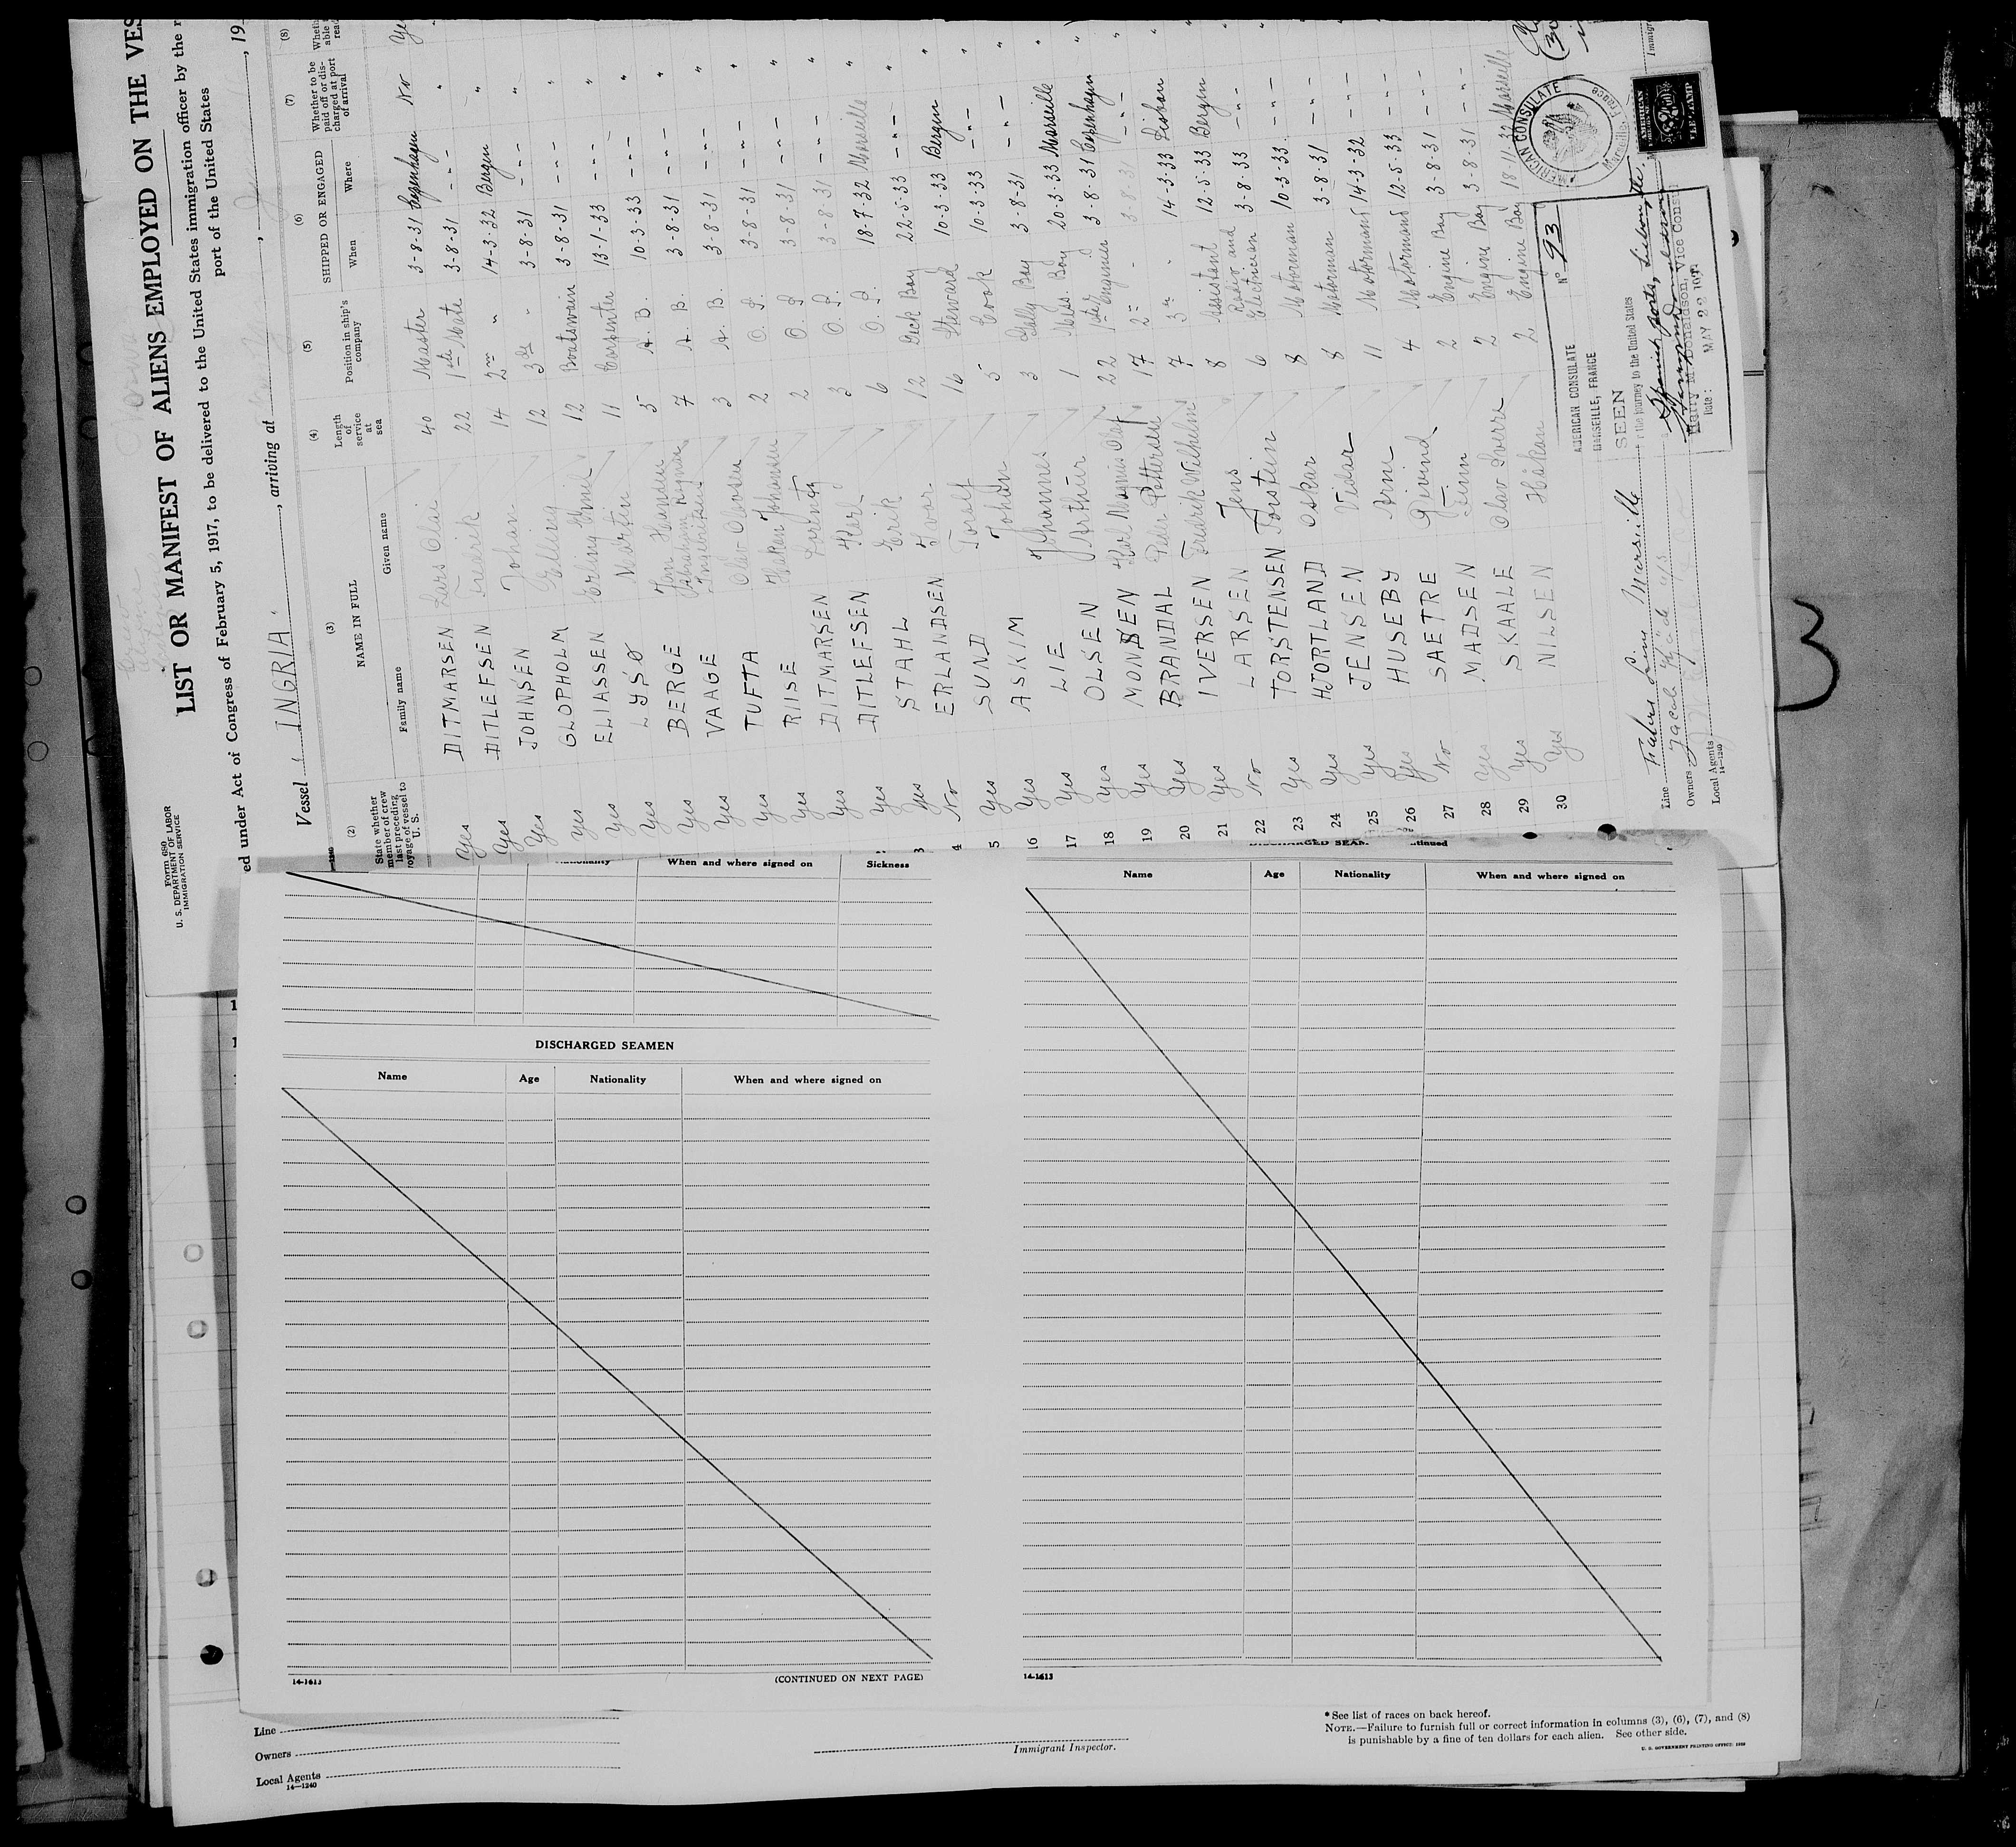 Form 680
U. S. DEPARTMENT OF LABOR
IMMIGRATION SERVICE
LIST OR MANIFEST OF ALIENS EMPLOYED ON THE VES
ed under Act of Congress of February 5, 1917, to be delivered to the United States immigration officer by the r
port of the United States
Vessel INGRIA, arriving at , , 19
(2) (3) (4) (5) (6) (7) (8)
State whether member of crew last preceding voyage of vessel to U. S.
NAME IN FULL
Family name Given name
Length of service at sea
Position in ship's company
SHIPPED OR ENGAGED
When Where
Whether to be paid off or discharged at port of arrival
Yes DITMARSEN Lars Olai 40 Master 3-8-31 Copenhagen No Ye
Yes DITLEFSEN Fredrik 22 1st Mate 3-8-31 - - - "
Yes JOHNSEN Johan 14 2nd " 14-3-32 Bergen "
Yes GLOPHOLM Elling 12 3rd " 3-8-31 - - - "
Yes ELIASSEN Erling Emil 12 Boatswain 3-8-31 - - - "
Yes LYSØ Martin 11 Carpenter 13-1-33 - - - "
Yes BERGE Finn Hansen 5 A. B. 10-3-33 - - - "
Yes VAAGE Abraham Ragnar Ingebrigtsen 7 A. B. 3-8-31 - - - "
Yes TUFTA Olav Olavsen 3 A. B. 3-8-31 - - - "
Yes RIISE Haken Johansen 2 O. S. 3-8-31 - - - "
Yes DITMARSEN 2 O. S. 3-8-31 - - - "
Yes DITLEFSEN Karl 3 O. S. 3-8-31 - - - "
Yes STAHL Erik 6 O. S. 18-7-32 Marseille "
Yes ERLANDSEN Ivar 12 Deck Boy 22-5-33 - - - "
No SUND Toralf 16 Steward 10-3-33 Bergen "
Yes ASKIM Johan 5 Cook 10-3-33 - - - "
16 Yes LIE Johannes 3 Gally Boy 3-8-31 - - - "
17 Yes OLSEN Arthur 1 Mess. Boy 20-3-33 Marseille "
18 Yes MONSEN Karl Magnus Olaf 22 1st Engineer 3-8-31 Copenhagen "
19 Yes BRANDAL Peder Pettersen 17 2nd - 3-8-31 - - - "
20 Yes IVERSEN Fredrik Wilhelm 7 3rd " 14-3-33 Lisban "
21 Yes LARSEN Jens 8 Assistant 12-5-33 Bergen "
22 No TORSTENSEN Torstein 6 Radio and Electrician 3-8-33 - - -
23 Yes HJORTLAND Oskar 8 Motorman 10-3-33 - - -
24 Yes JENSEN Vidar 8 Motorman 3-8-31 - - -
25 Yes HUSEBY Arne 11 Motormand 14-3-32 - - -
26 Yes SAETRE Eivind 4 Motormand 12-5-33 - - -
27 No MADSEN Finn 2 Engine Boy 3-8-31 - - -
28 Yes SKAALE Olav Sverre 2 Engine Boy 3-8-31 - - -
29 Yes NILSEN Håkan 2 Engine Boy 18-11-32 Marseille
30 Yes
Line Fabre Line Marseille
Owners Jacob Kjöde A/S
Local Agents
14-1240
AMERICAN CONSULATE
MARSEILLE, FRANCE
No 93
SEEN
the journey to the United States
Spanish ports, Lisbon
Harry M Donaldson, Vice Consul
Date: MAY 22
AMERICAN CONSULATE
Marseille, France
Immigr
When and where signed on Sickness
Name Age Nationality When and where signed on
DISCHARGED SEAMEN
Name Age Nationality When and where signed on
14-1613 (CONTINUED ON NEXT PAGE)
14-1613
Line
Owners
Local Agents
14-1240
Immigrant Inspector.
* See list of races on back hereof.
NOTE.—Failure to furnish full or correct information in columns (3), (6), (7), and (8)
is punishable by a fine of ten dollars for each alien. See other side.
U. S. GOVERNMENT PRINTING OFFICE
3